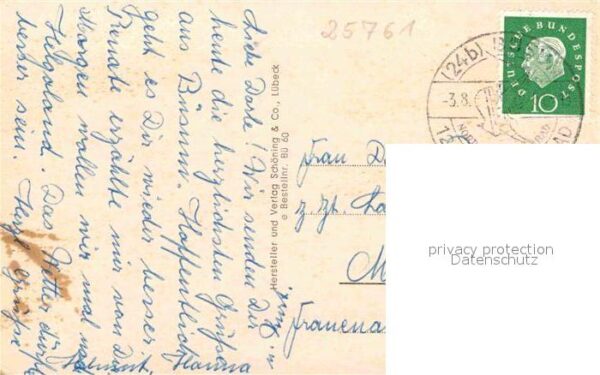 25761
(24b) BÜSUM
-3.8.
DEUTSCHE BUNDESPOST
10
Liebe Dorle! Wir senden Dir
heute die herzlichsten Grüße
aus Büsum. Hoffentlich
geht es Dir wieder besser.
Renate erzählte mir von Dir.
Morgen wollen wir mal nach
Helgoland. Das Wetter dürfte
besser sein. Herzl. Grüße
Helmut, Hanna
Hersteller und Verlag Schöning & Co., Lübeck
e Bestellnr. Bü 60
Frau D
z. Zt.
M
Frauena
privacy protection
Datenschutz